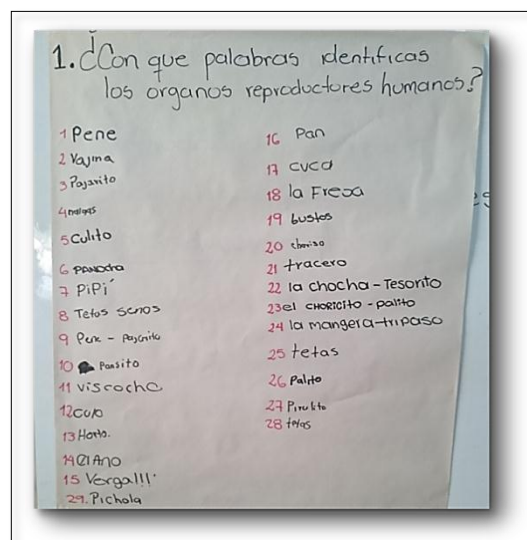 1. ¿Con que palabras identificas
los organos reproductores humanos?
1 Pene
2 Vajina
3 Pajarito
4 nalgas
5 Culito
6 PANOCHA
7 PiPi
8 Tetas senos
9 Pene - Pajarito
10 Pansito
11 Viscocho
12 culo
13 Hoto.
14 El Ano
15 Verga!!!
29. Pichola
16 Pan
17 cuca
18 la Fresa
19 bustos
20 choriso
21 tracero
22 la chocha - Tesorito
23 el CHORICITO - palito
24 la mangera - tripaso
25 tetas
26 Palito
27 Pirulito
28 tetas